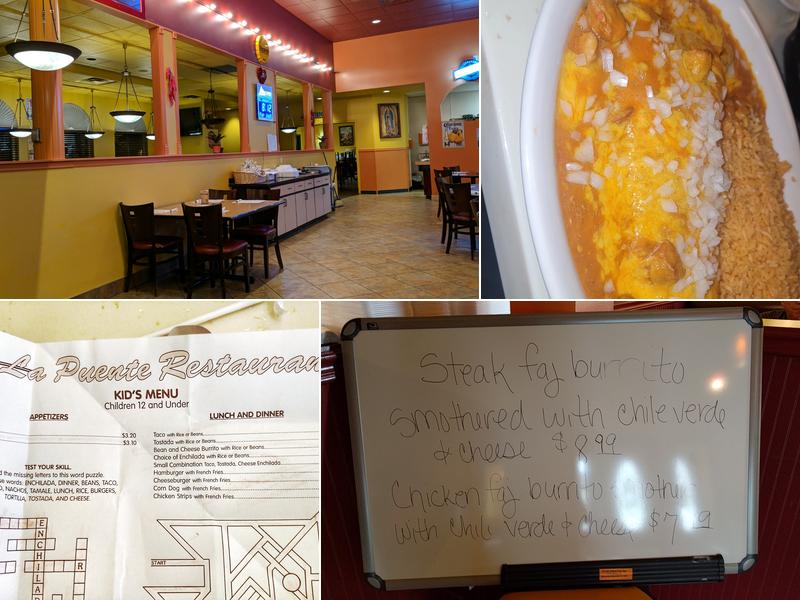 8:12
La Puente Restauran
KID'S MENU
Children 12 and Under
APPETIZERS
$3.20
$3.10
LUNCH AND DINNER
Taco with Rice or Beans
Tostada with Rice or Beans
Bean and Cheese Burrito with Rice or Beans
Choice of Enchilada with Rice or Beans
Small Combination Taco, Tostada, Cheese Enchilada
Hamburger with French Fries
Cheeseburger with French Fries
Corn Dog with French Fries
Chicken Strips with French Fries
TEST YOUR SKILL.
d the missing letters to this word puzzle.
e words: ENCHILADA, DINNER, BEANS, TACO,
O, NACHOS, TAMALE, LUNCH, RICE, BURGERS,
TORTILLA, TOSTADA, AND CHEESE.
ENCHILAD
R
START
Steak faj burrito
smothured with chile verde
& cheese $8.99
Chicken faj burrito smother
with chili verde & cheese $7.